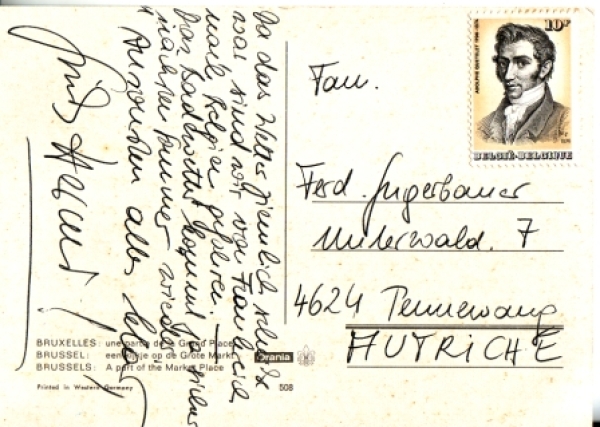 Da das Wetter ziemlich schlecht
war sind wir von Frankreich
nach Belgien gefahren.
Das Badewetter kommt
nächsten Sommer wieder
Ansonsten alles
10F
ADOLPHE QUETELET 1796-1874
BELGIË-BELGIQUE
Fam.
Ferd. Jugerbauer
Unterwald. 7
4624 Pennewang
AUTRICHE
BRUXELLES: une partie de la Grand Place
BRUSSEL: een kijkje op de Grote Markt
BRUSSELS: A part of the Market Place
Printed in Western Germany
Crania
508